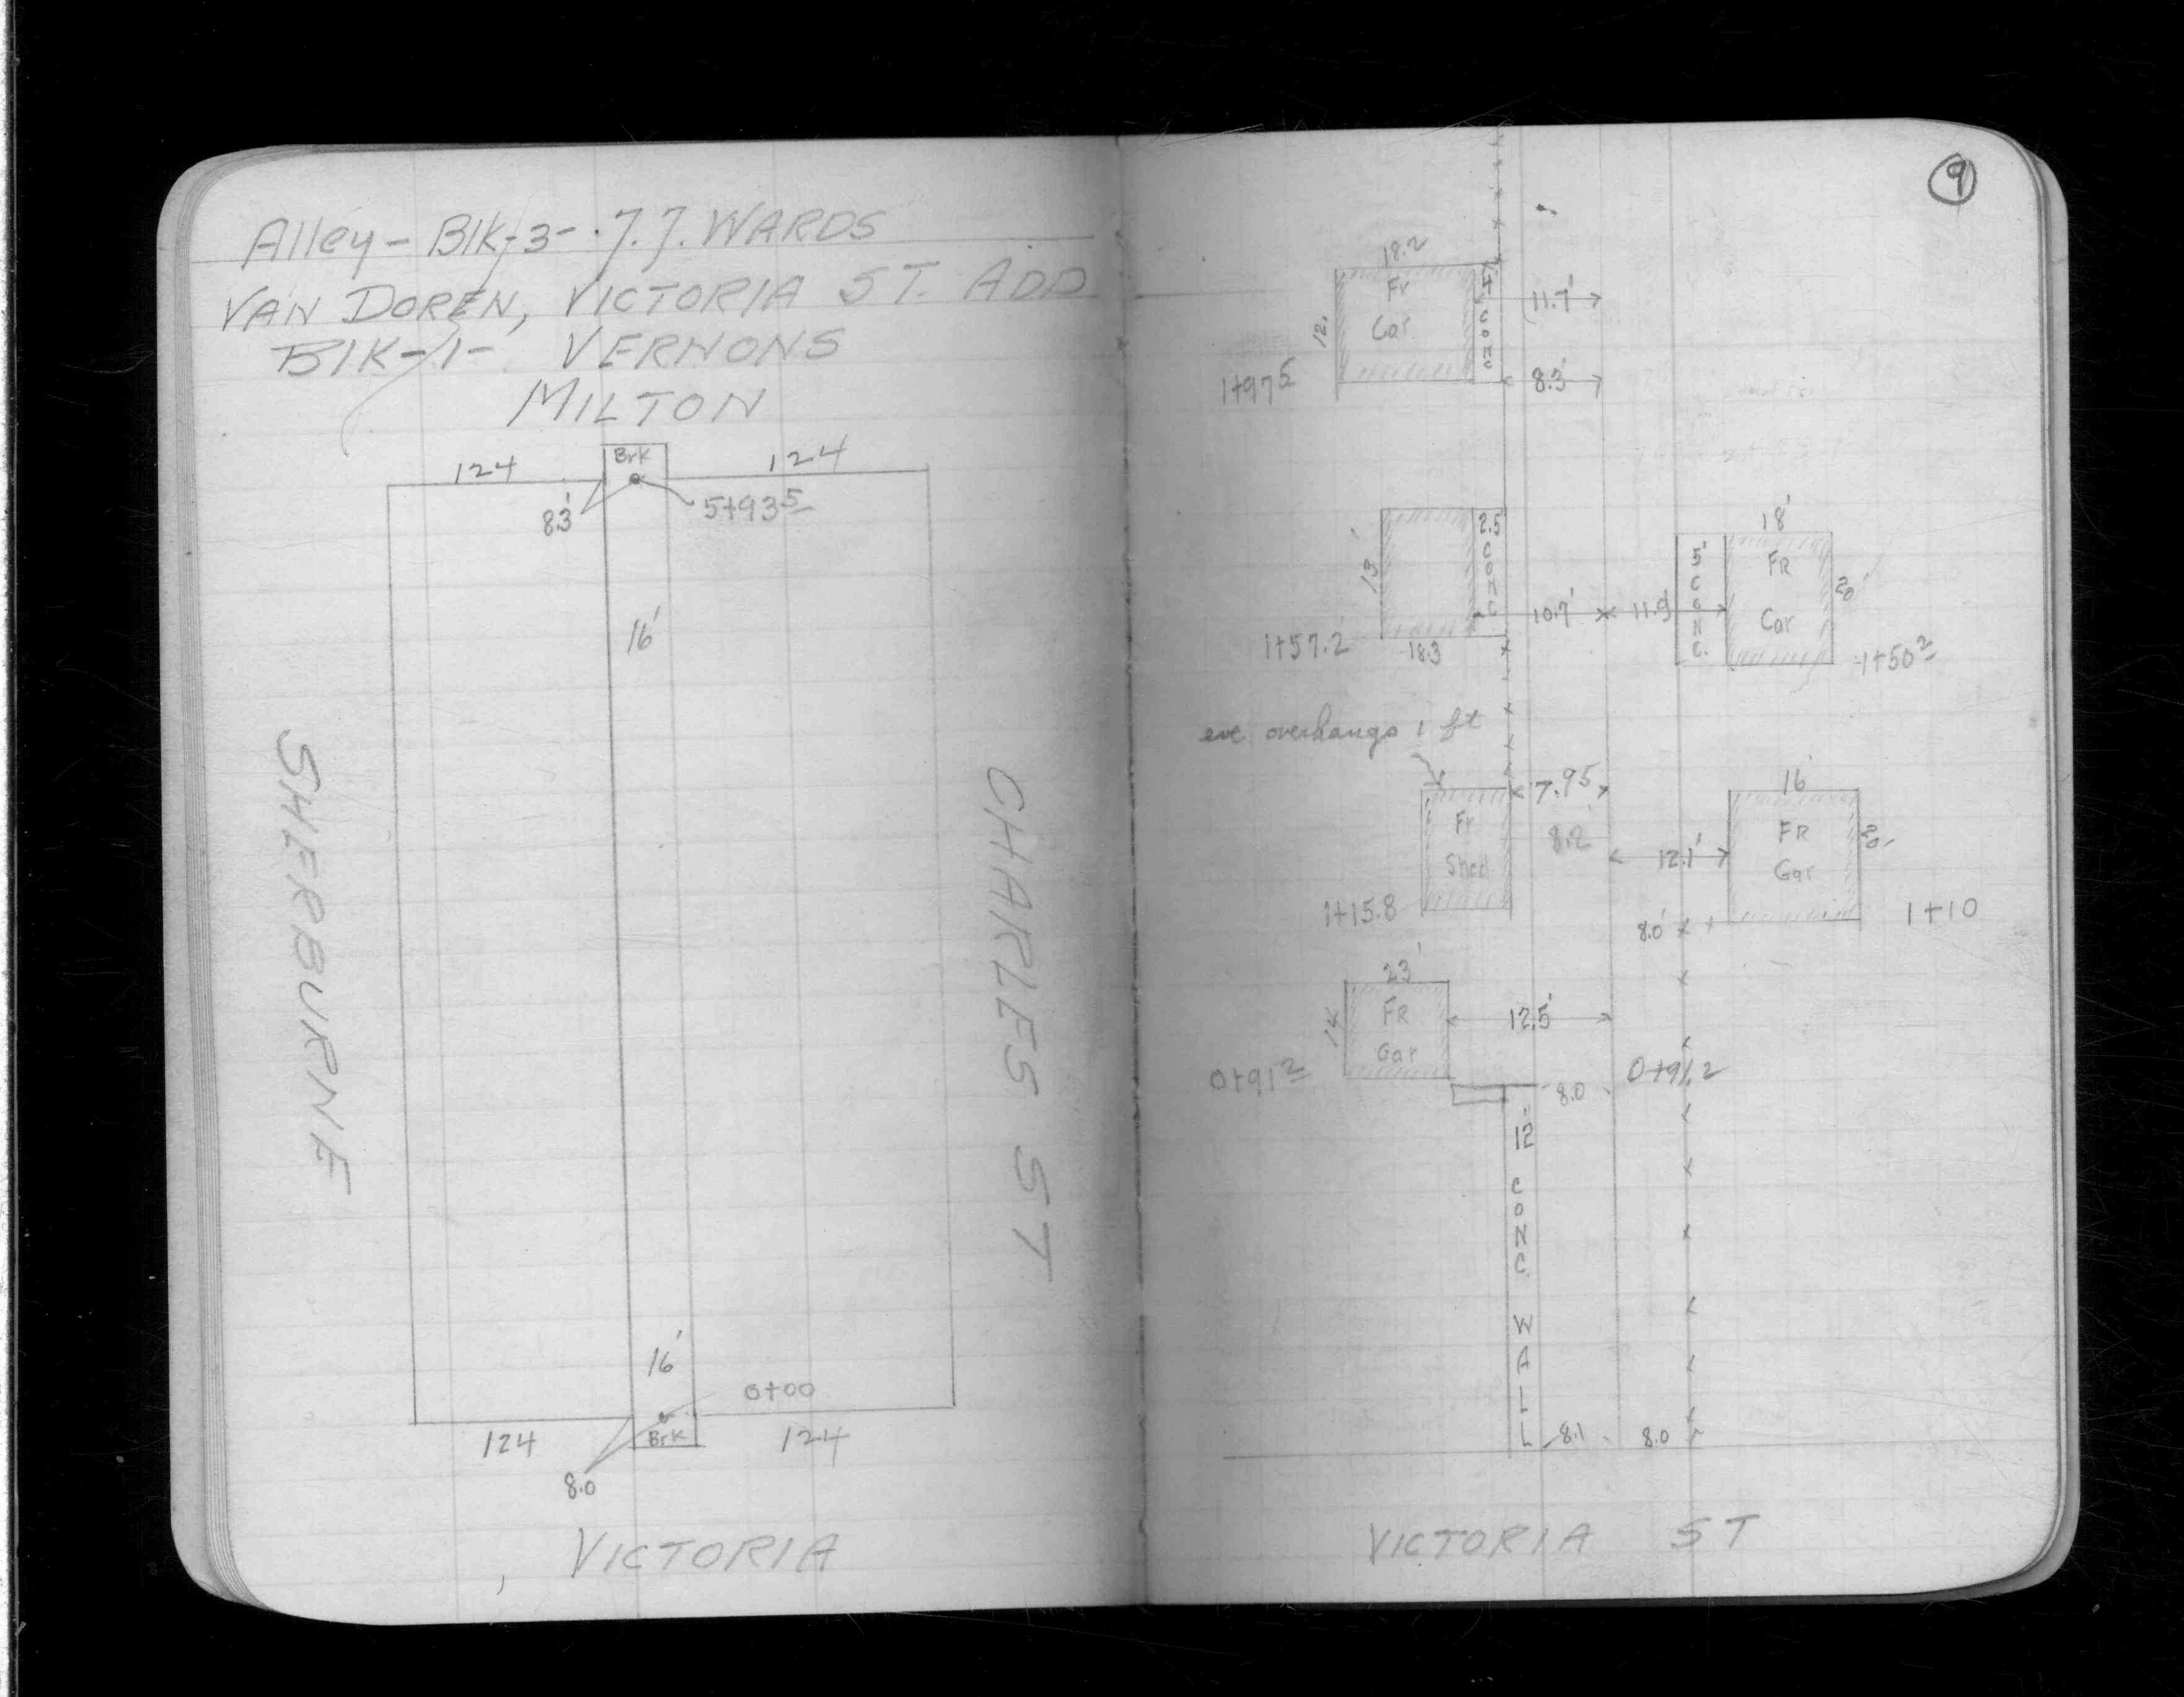 Alley - Blk-3- J.J. WARDS
VAN DOREN, VICTORIA ST. ADD
Blk-1- VERNONS
MILTON
124
Brk
124
8.3'
5+93 5
16'
SHERBURNE
CHARLES ST
16'
0+00
124
Brk
124
8.0
VICTORIA
9
18.2
Fr
Gar
4'
CONC
11.7'
12.
1+97 5
8.3'
2.5
CONC
13'
10.7'
11.9'
1+57.2
18.3
18'
5'
CONC.
FR
Gar
20'
1+50 2
eve overhangs 1 ft
7.95
Fr
Shed
8.2'
1+15.8
16'
12.1'
FR
Gar
20'
8.0'
1+10
23'
14'
FR
Gar
12.5'
0+91 2
8.0
0+91.2
12"
CONC.
WALL
8.1
8.0
VICTORIA ST